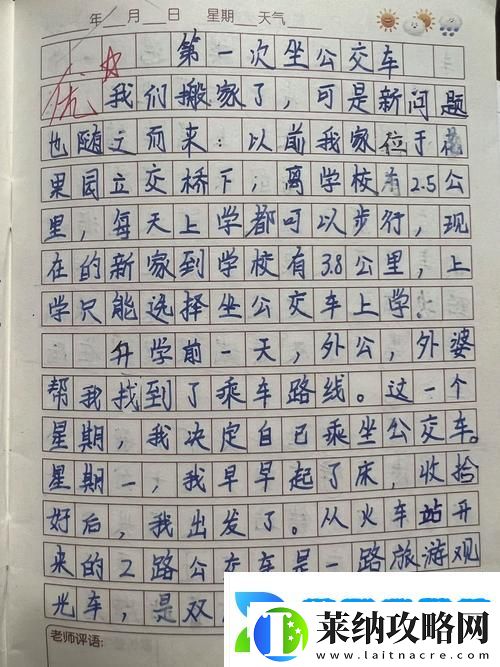 年 月 日 星期 天气
第一次坐公交车
优
我们搬家了,可是新问题
也随之而来:以前我家位于花
果园立交桥下,离学校有2.5公
里,每天上学都可以步行,现
在的新家到学校有3.8公里,上
学只能选择坐公交车上学。
升学前一天,外公,外婆
帮我找到了乘车路线。过一个
星期,我决定自己乘坐公交车。
星期一,我早早起了床,收拾
好后,我出发了。从火车站开
来的2路公交车是一路旅游观
光车,是双
老师评语:
莱纳攻略网
www.laitnacre.com